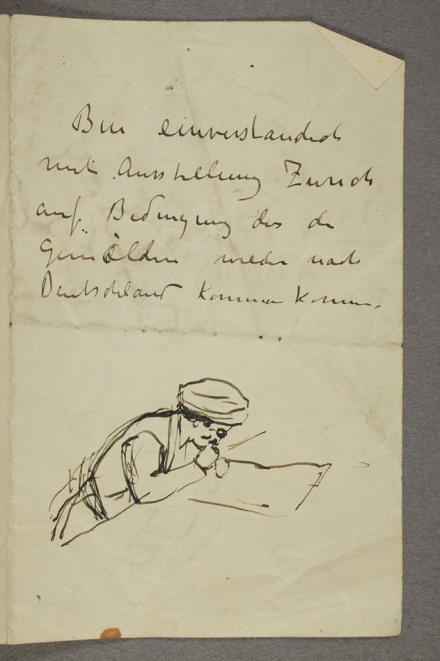 Bin einverstanden
mit Ausstellung Zurich
auf Bedingung das de
Gemälden wieder nach
Deutschland kommen konnen.